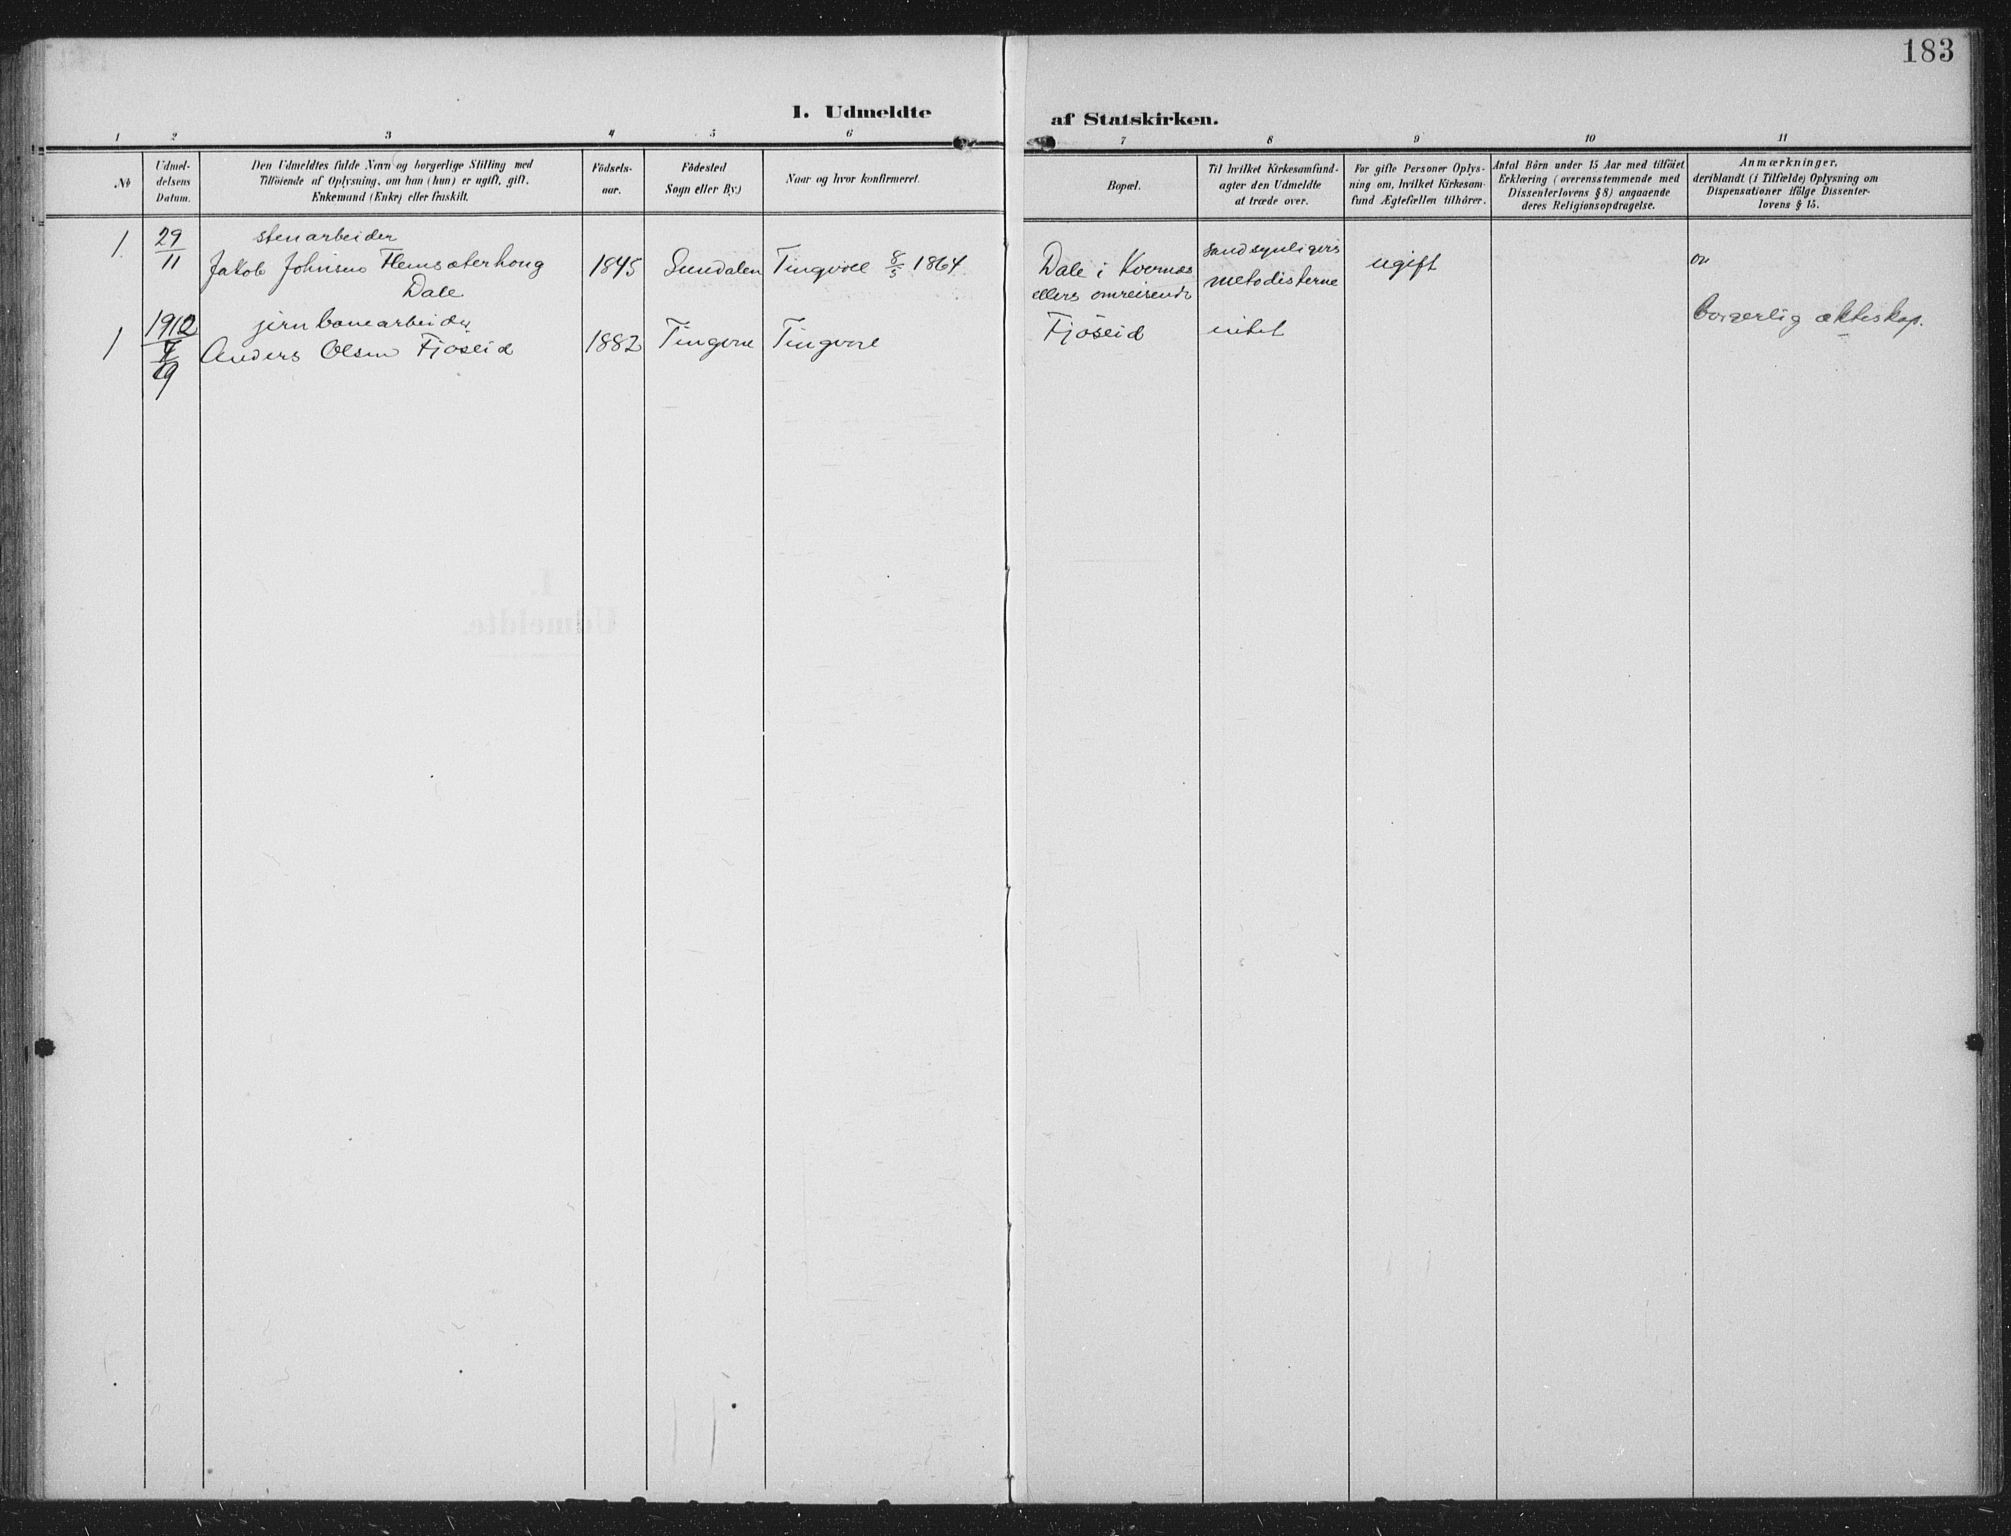 183
1. Udmeldte af Statskirken.
1 2 3 4 5 6 7 8 9 10 11
No
Udmel-
delsens
Datum.
Den Udmeldtes fulde Navn og borgerlige Stilling med
Tilföiende af Oplysning, om han (hun) er ugift, gift,
Enkemand (Enke) eller fraskilt.
Födsels-
aar.
Födested
Sogn eller By.)
Naar og hvor konfirmeret.
Bopæl.
Til hvilket Kirkesamfund-
agter den Udmeldte
at træde over.
For gifte Personer Oplys-
ning om, hvilket Kirkesam-
fund Ægtefællen tilhörer.
Antal Börn under 15 Aar med tilföiet
Erklæring (overensstemmende med
Dissenterlovens § 8) angaaende
deres Religionsopdragelse.
Anmærkninger,
deriblandt (i Tilfælde) Oplysning om
Dispensationer ifölge Dissenter-
lovens § 15.
1.
29/11
stenarbeider
Jakob Johnsen Flemsæterhaug
Dale
1845
Sundalen
Tingvoll 8/5 1864
Dale i Kvernæs
ellers omreisende
sandsynligvis
metodisterne
ugift
1
1912
7/9
jernbanearbeider
Anders Olsen Fjøseid
1882
Tingvoll
Tingvoll
Fjöseid
intet
borgerlig ækteskap.